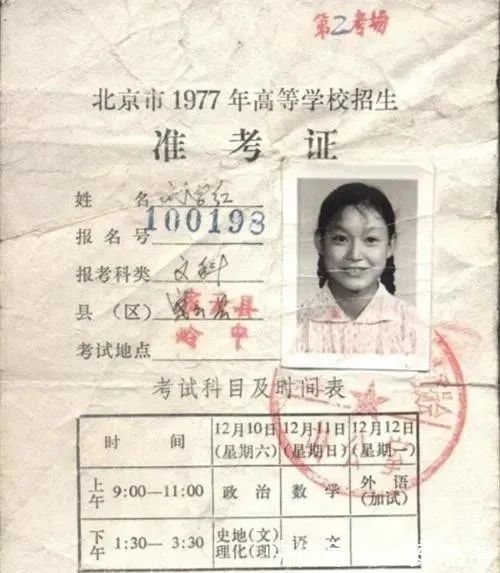 第2考场
北京市1977年高等学校招生
准考证
姓名 刘学红
报名号 100198
报考科类 文科
县（区） 密云县
考试地点 岭中
考试科目及时间表
时间 12月10日（星期六） 12月11日（星期日） 12月12日（星期一）
上午 9:00—11:00 政治 数学 外语（加试）
下午 1:30—3:30 史地（文）理化（理） 语文